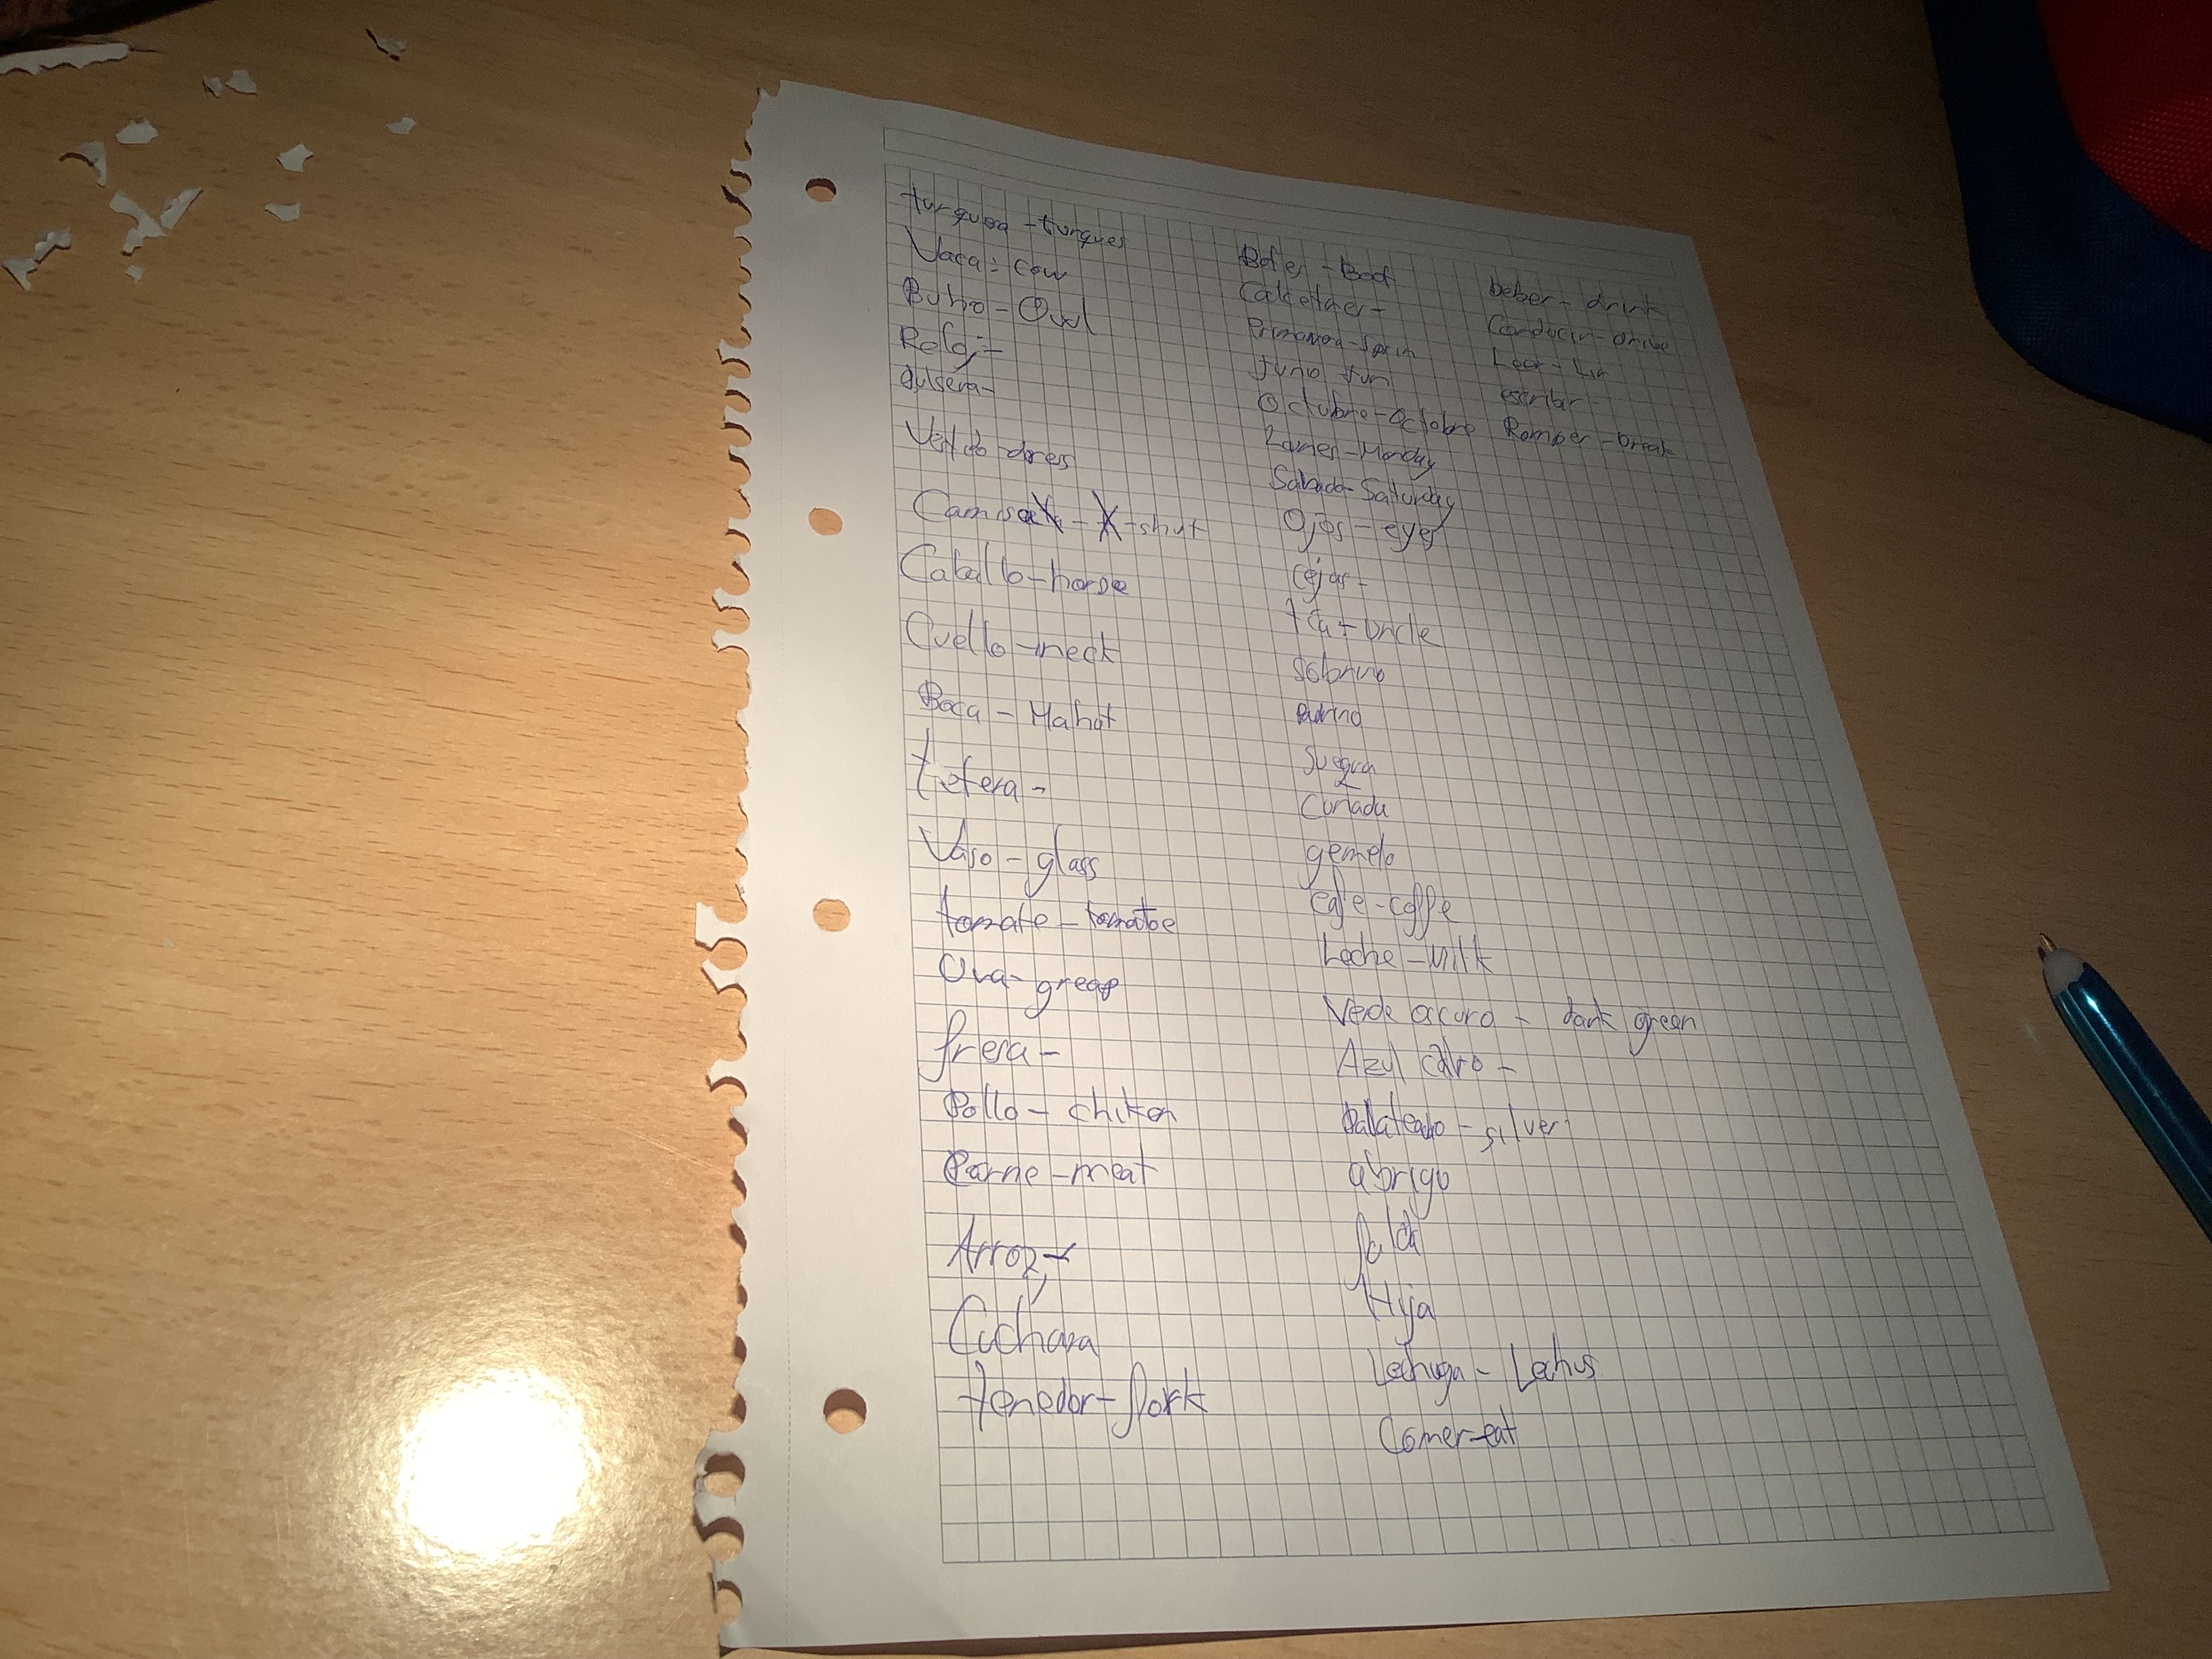 turquesa - turques
Vaca: cow
Buho - Owl
Reloj -
Pulsera -
Vestido - dress
Camisa - X - shirt
Caballo - horse
Cuello - neck
Boca - Mahot
tijera -
Vaso - glass
tomate - tomatoe
Uva - greap
fresa -
Pollo - chiken
Carne - meat
Arroz -
Cuchara
tenedor - fork
Botes - Boot
Calcetines -
Primavera - Sprin
Junio Jun
Octubre - Octobre
Lunes - Monday
Sabado - Saturday
Ojos - eyes
Cejas -
tia - uncle
Sobrino
Padrino
Suegra
Cuñada
gemelo
Cafe - coffe
Leche - milk
Verde oscuro - dark green
Azul claro -
Palateado - silver
abrigo
falda
Hija
Lechuga - Lechus
Comer - eat
beber - drink
Conducir - drive
Leer -
escribir -
Romper - break